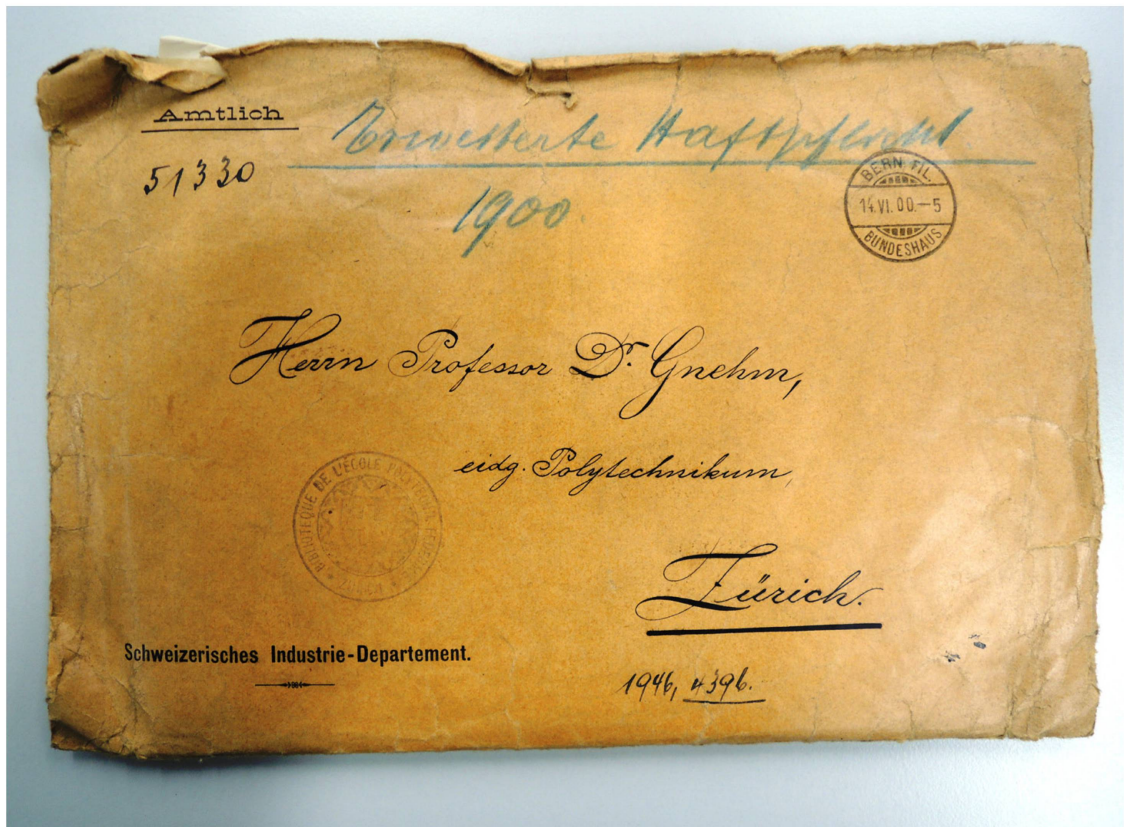 Amtlich
Erweiterte Haftpflicht
51330
1900.
BERN. FIL.
14.VI.00.–5
BUNDESHAUS
Herrn Professor Dr. Gnehm,
eidg. Polytechnikum,
BIBLIOTEQUE DE L'ÉCOLE
Zürich.
Schweizerisches Industrie-Departement.
1946, 4396.